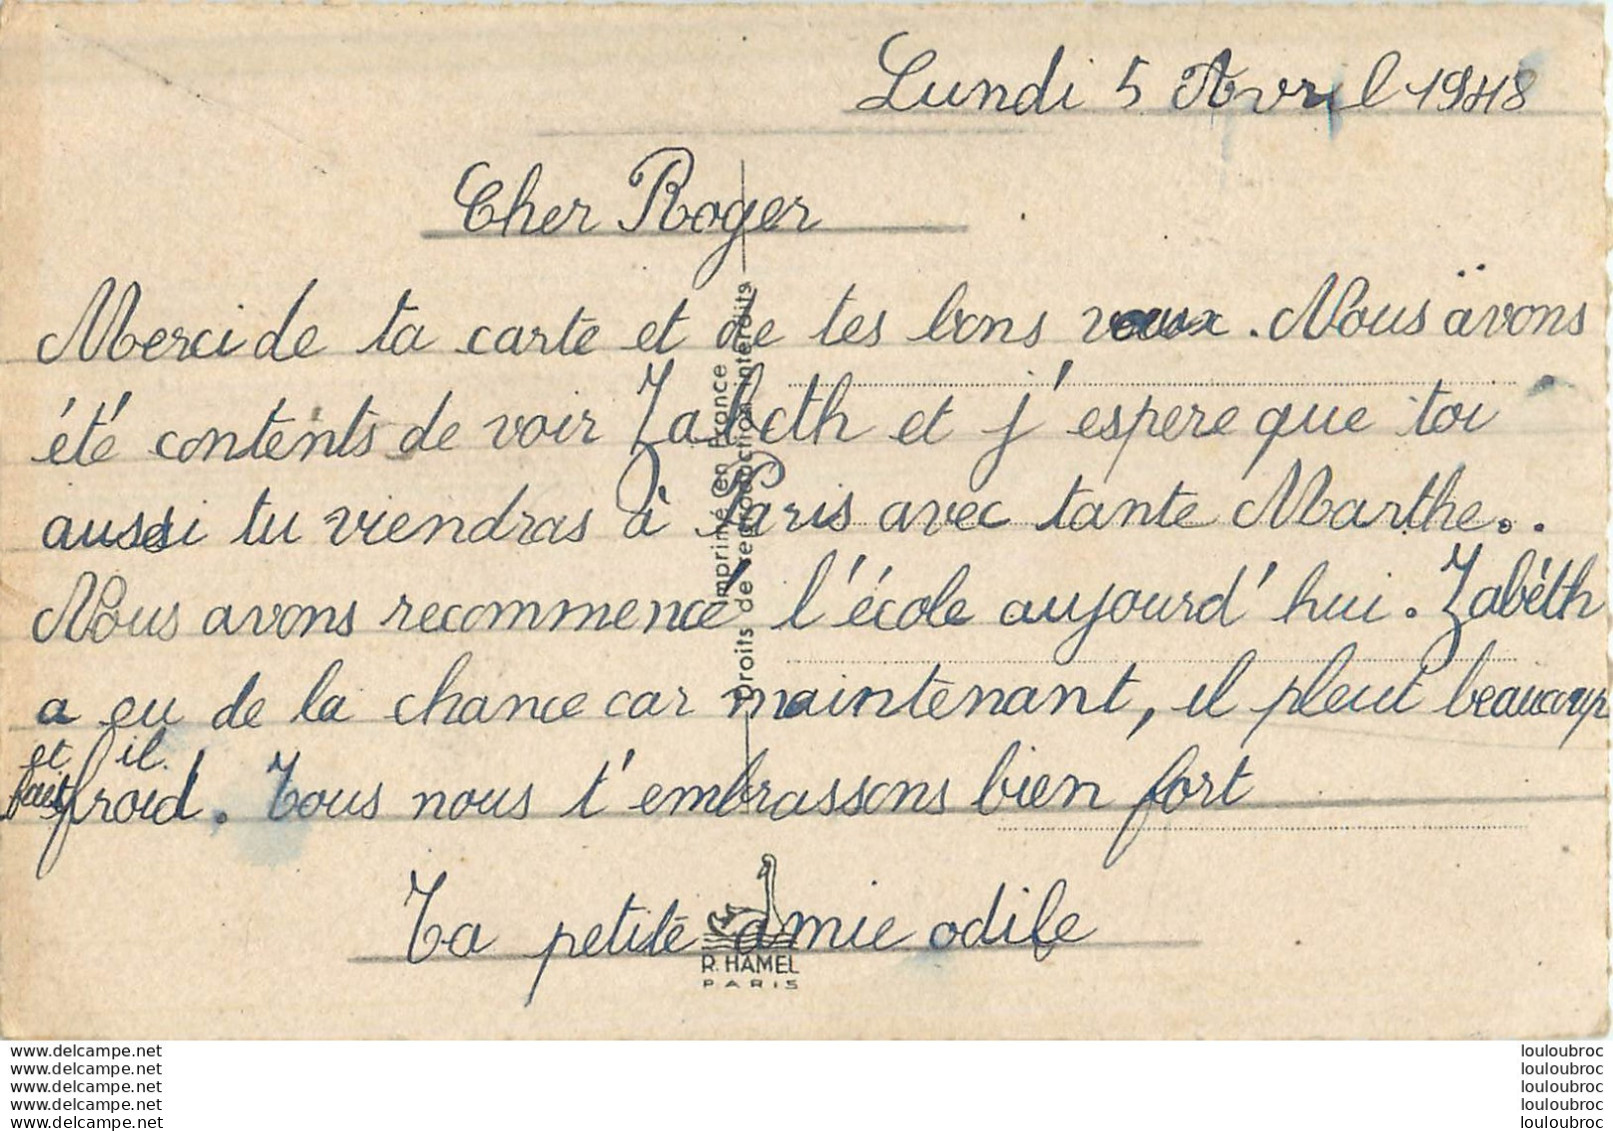 Lundi 5 Avril 1948
Cher Roger
Merci de ta carte et de tes bons vœux. Nous avons
été contents de voir Zabeth et j'espere que toi
aussi tu viendras à Paris avec tante Marthe..
Nous avons recommencé l'école aujourd'hui. Zabèth
a eu de la chance car maintenant, il pleut beaucoup
et il
fait froid. Tous nous t'embrassons bien fort
Ta petite amie odile
Imprimé en France
Droits de reproduction interdits
R. HAMEL
PARIS
www.delcampe.net
www.delcampe.net
www.delcampe.net
www.delcampe.net
www.delcampe.net
louloubroc
louloubroc
louloubroc
louloubroc
louloubroc